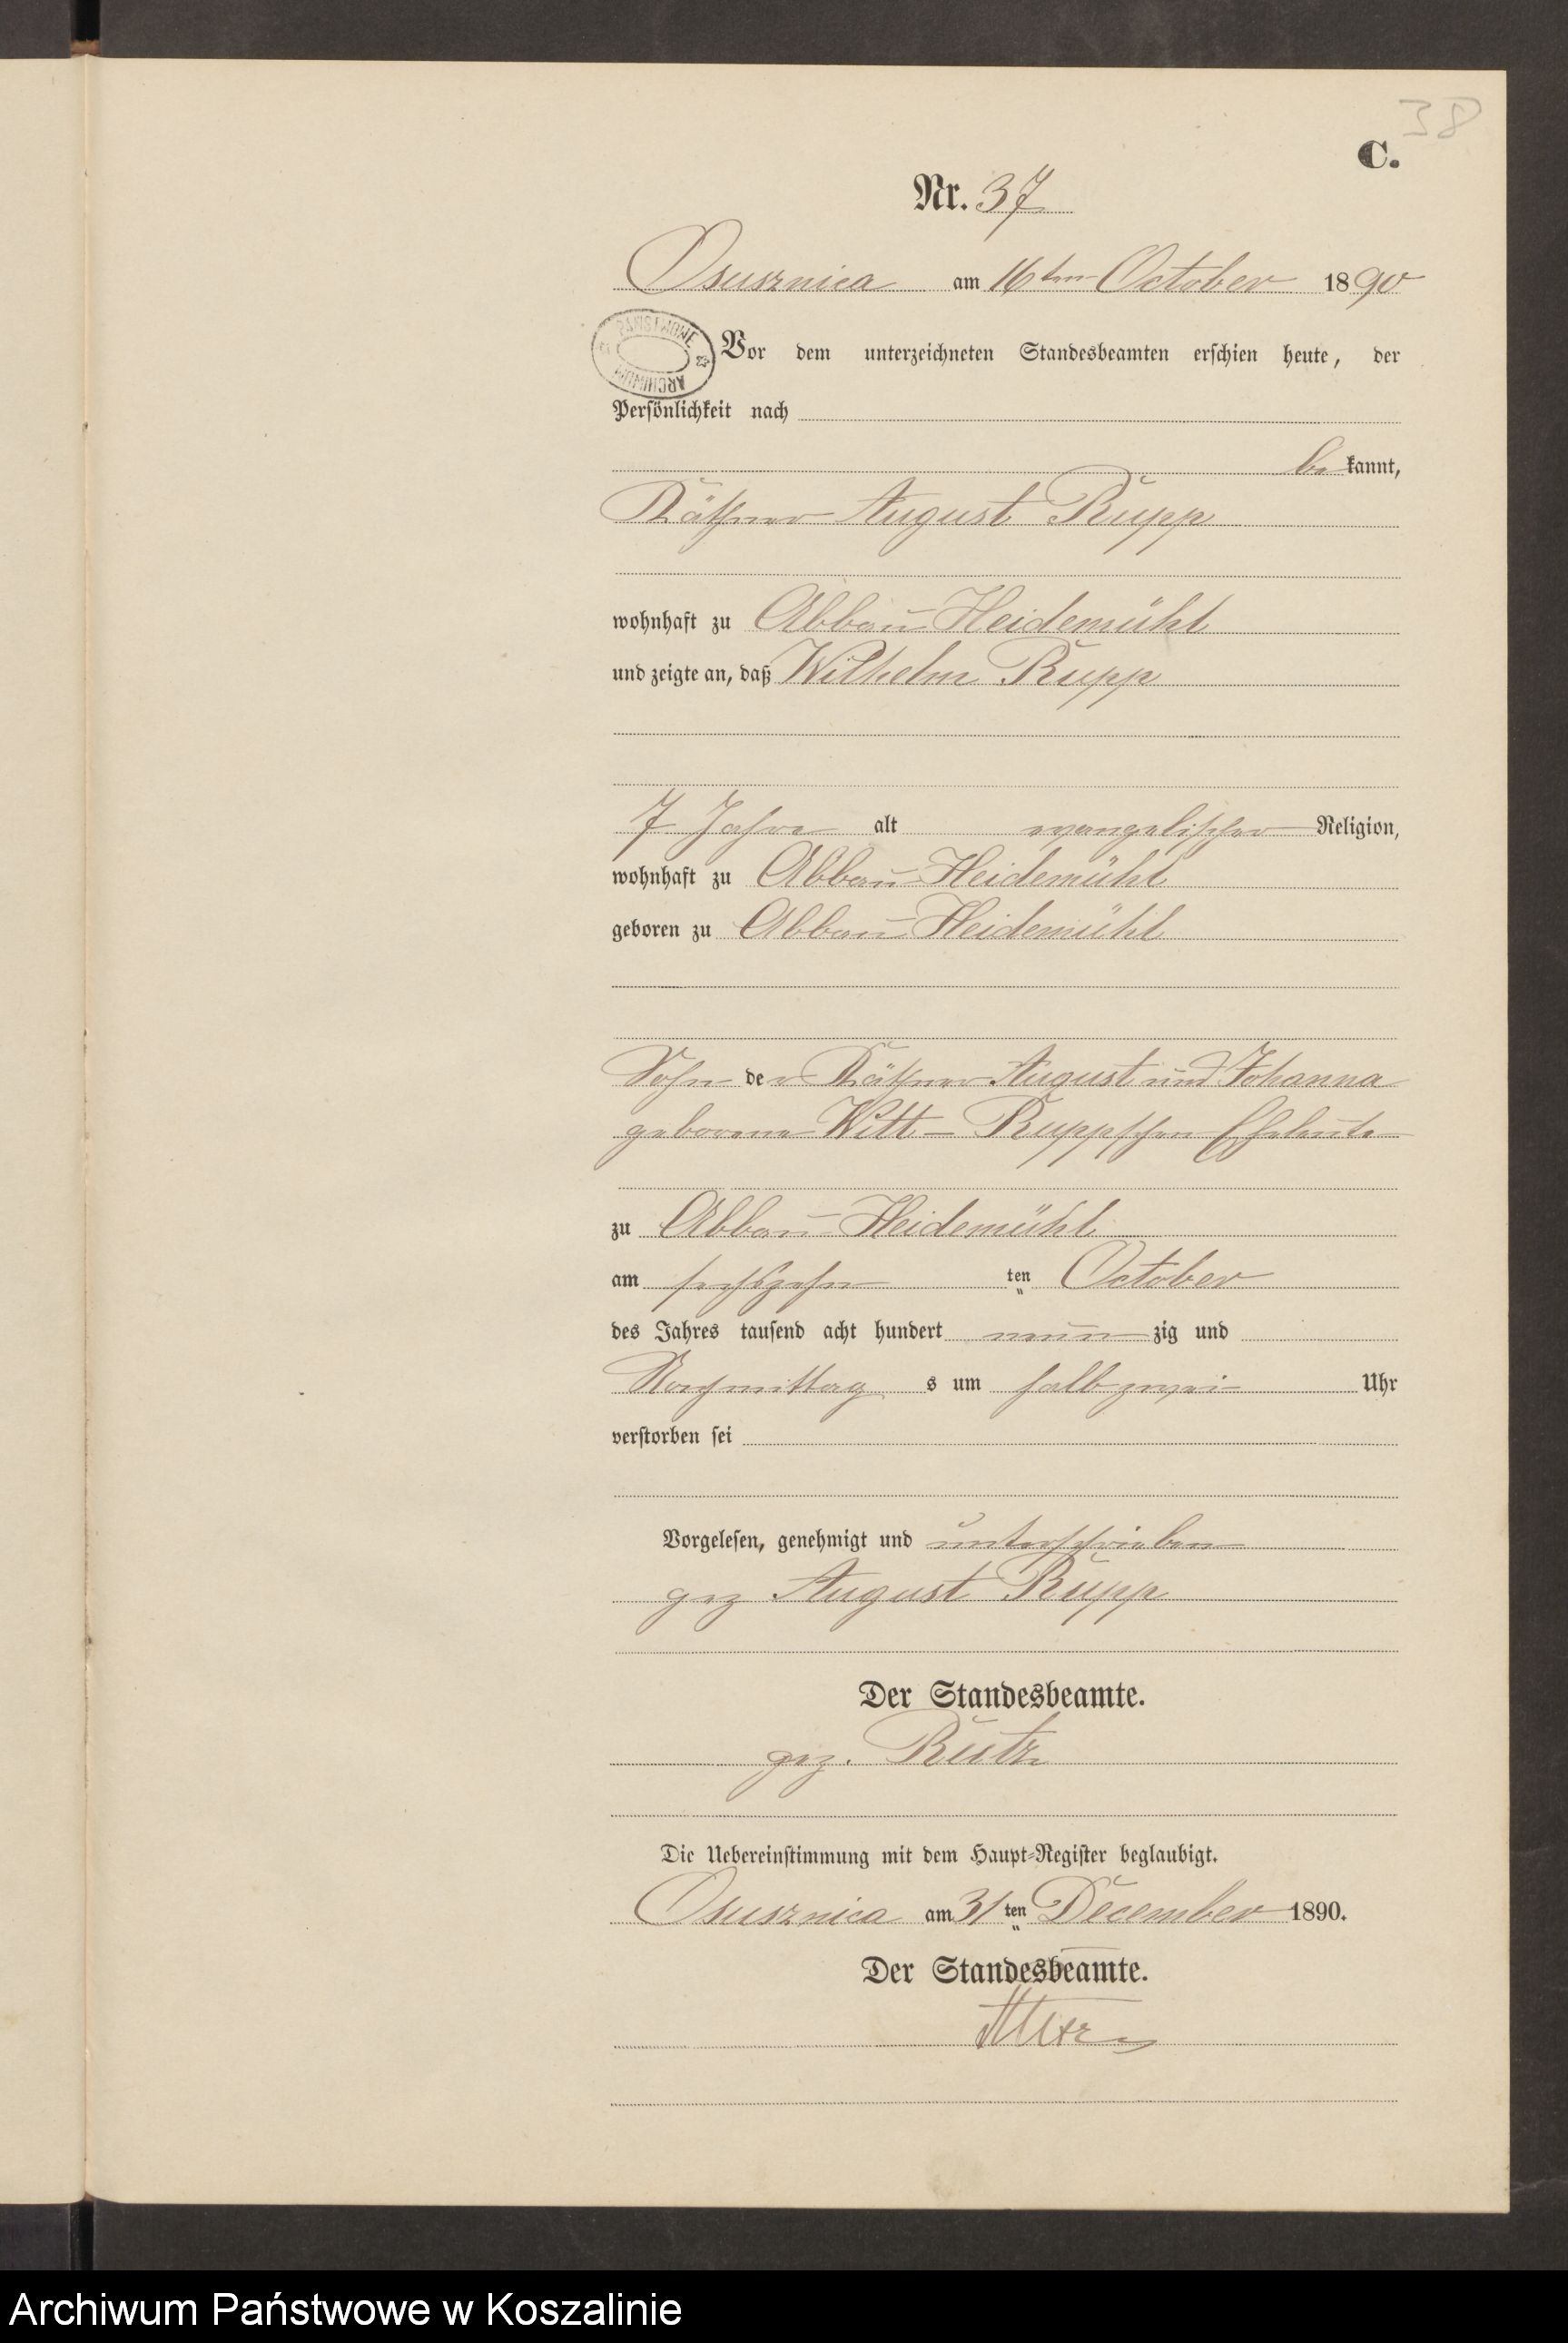 38
C.
Nr. 37
Osusznica am 16ten October 1890
PAŃSTWOWE ARCHIWUM
Vor dem unterzeichneten Standesbeamten erschien heute, der
Persönlichkeit nach
be kannt,
Käthner August Rupp
wohnhaft zu Abbau Heidemühl
und zeigte an, daß Wilhelm Rupp
7 Jahre alt evangelischer Religion,
wohnhaft zu Abbau Heidemühl
geboren zu Abbau Heidemühl
Sohn der Käthner August und Johanna
geborene Witt - Ruppschen Eheleute
zu Abbau Heidemühl
am sechszehn ten October
des Jahres tausend acht hundert neun zig und
Nachmittag s um halb zwei Uhr
verstorben sei
Vorgelesen, genehmigt und unterschrieben
gez August Rupp
Der Standesbeamte.
gez.
Die Uebereinstimmung mit dem Haupt-Register beglaubigt.
Osusznica am 31 ten December 1890.
Der Standesbeamte.
Archiwum Państwowe w Koszalinie